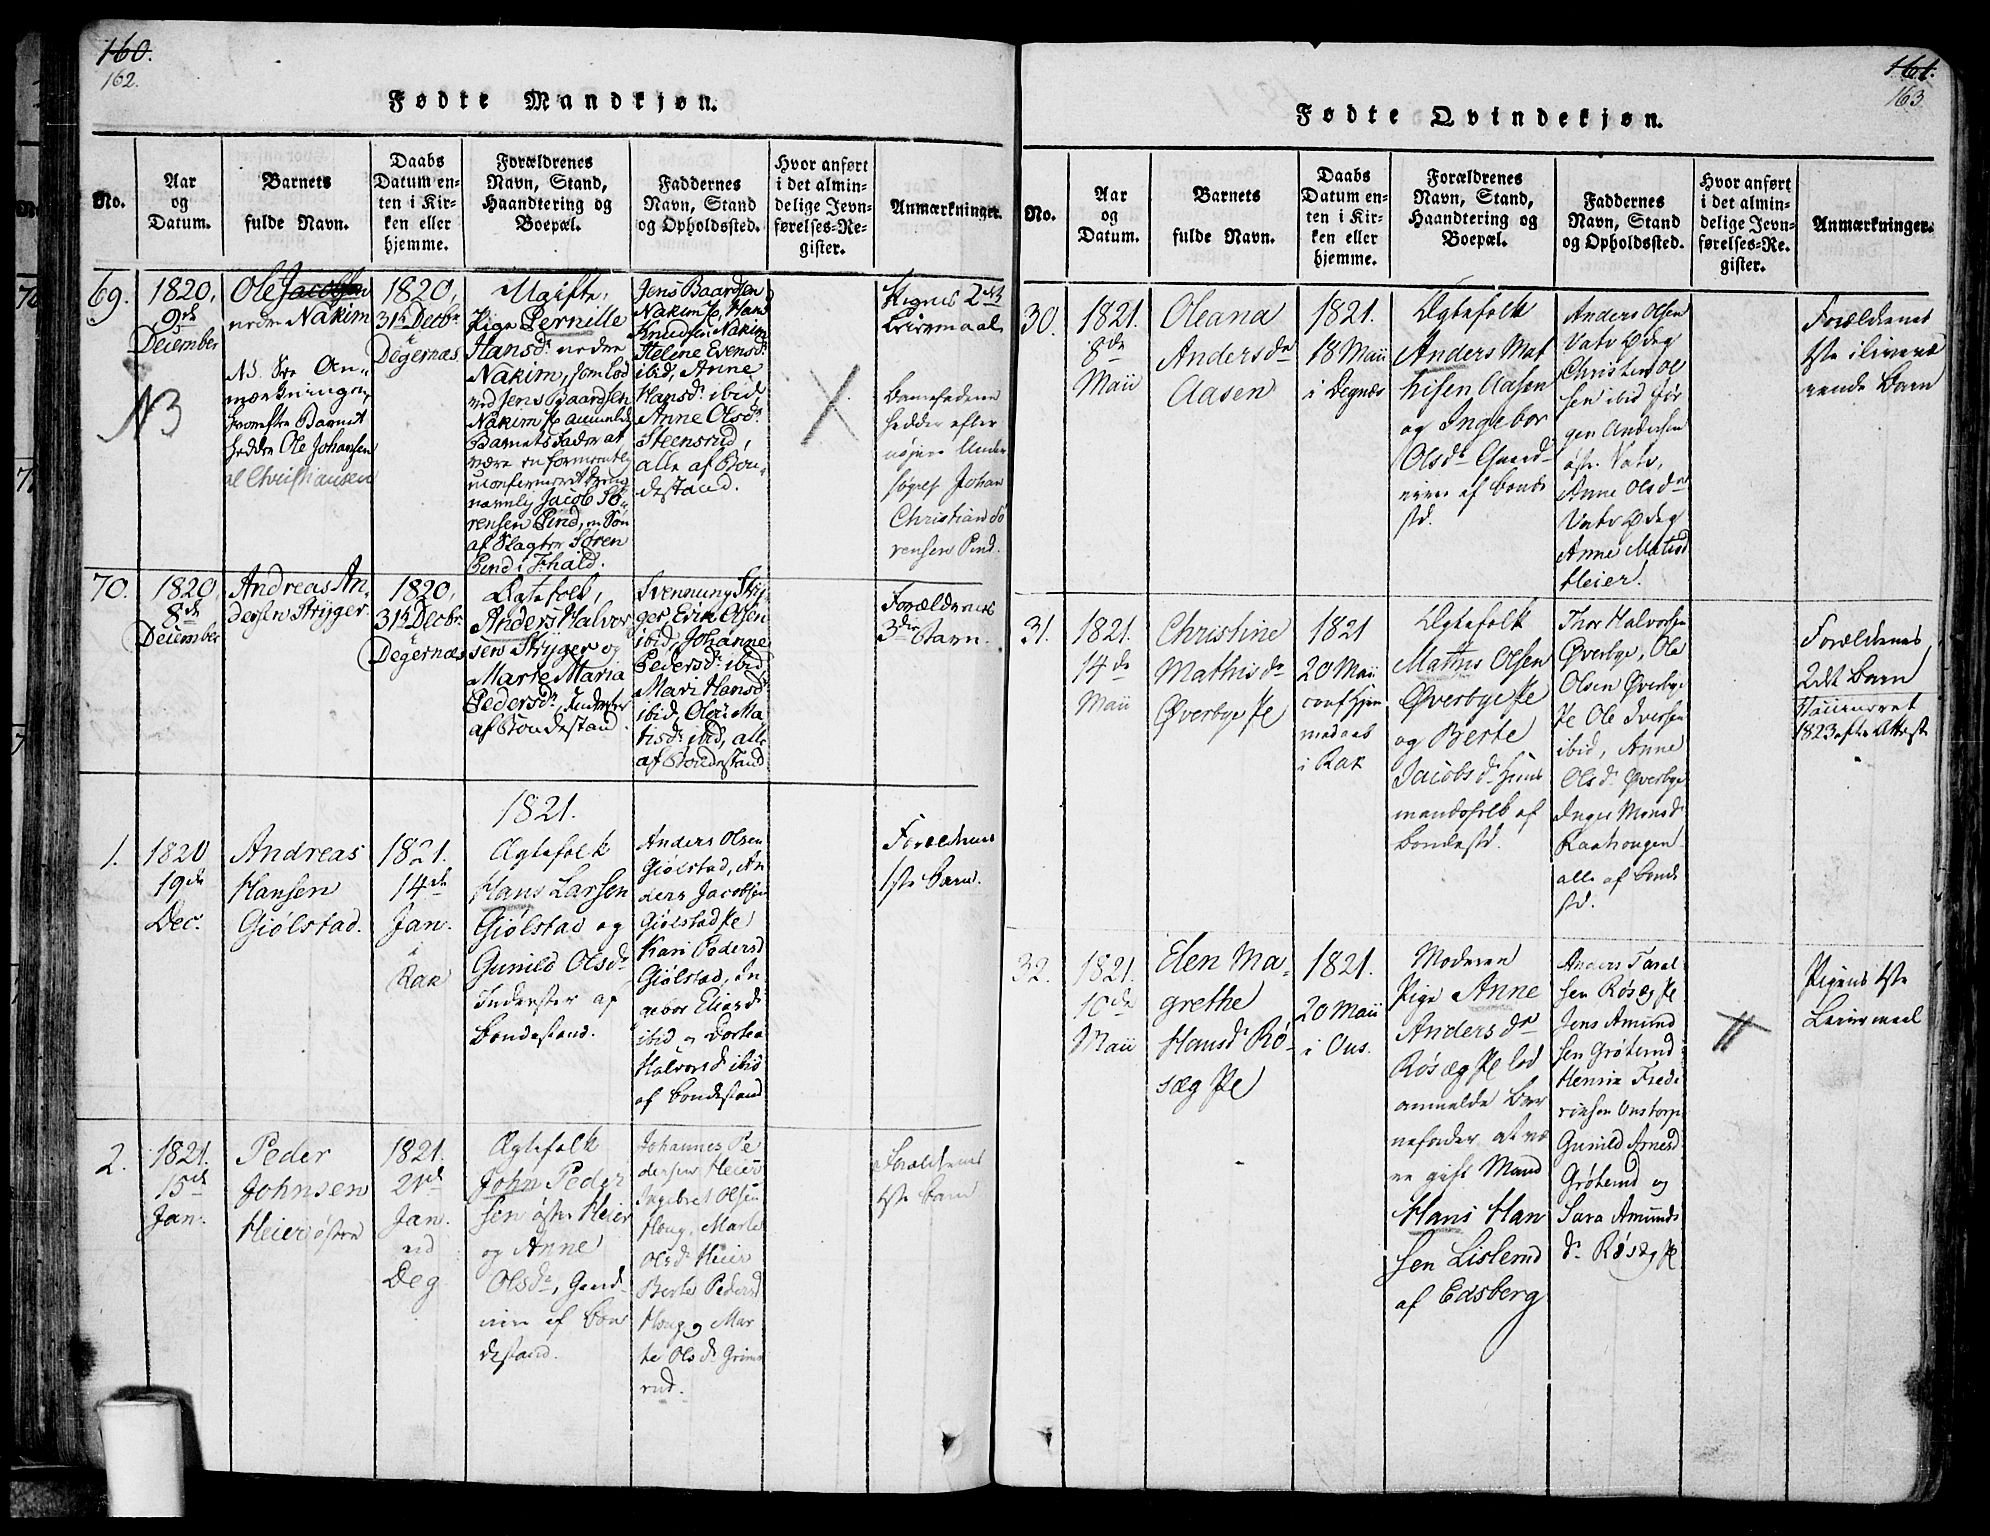 160.
162.
Fødte Mandkjøn.
No.
Aar
og
Datum.
Barnets
fulde Navn.
Daabs
Datum en-
ten i Kir-
ken eller
hjemme.
Forældrenes
Navn, Stand,
Haandtering og
Boepæl.
Faddernes
Navn, Stand
og Opholdssted.
Hvor anført
i det almin-
delige Jevn-
førelses-Re-
gister.
Anmærkninger.
69.
1820,
9de
December
Ole Jacobsen
nedre Nakim
NB. See An-
mærkningen,
hvorefter Barnet
hedder Ole Johansen
el Christiansen
NB
1820,
31te Decbr
i
Degernæs
Ugifte,
Pige Pernille
Hansdr nedre
Nakim, som lod
ved Jens Baardsen
Nakim anmelde
Barnets Fader at
være en formentlig
uconfirmeret Dreng
navnlig Jacob Sø-
rensen Pind, en Søn
af Slagter Søren
Pind i Fhald.
Jens Baardsen
Nakim, Hans
Knudsen Nakim
Helene Evensdr
ibid, Anne
Hansdr ibid
Anne Olsdr
Steensrud,
alle af Bon-
destand.
Pigens 2det
Leiermaal
Barnefaderen
hedder efter
nøiere Under
søgelse Johan
Christian Sø
rensen Pind.
70.
1820
8de
December
Andreas An-
dersen Stryger
1820,
31te Decbr
i
Degernæs
Ægtefolk,
Anders Halvor
sen Stryger og
Marte Maria
Pedersdr, Inderster
af Bondestand.
Svennung Stry
ger, Erik Olsen
ibid, Johanne
Pedersdr ibid
Mari Hansdr
ibid, Oleu Ma
tisdr ibid, alle
af Bondestand
Forældrenes
3die Barn.
1821.
1.
1820
19de
Dec.
Andreas
Hansen
Giølstad.
1821.
14de
Jan.
i
Rak
Ægtefolk
Hans Larsen
Giølstad og
Gunild Olsdr
Inderster af
Bondestand.
Anders Olsen
Giølstad, An
ders Jacobsen
Giølstad
Kari Pedersd
Giølstad, In
gebor Eliasd
ibid og Dorthea
Halvorsd ibid
af Bondestand
Forældrenes
1ste Barn.
2.
1821.
15de
Jan.
Peder
Johnsen
Heier østre
1821.
21de
Jan.
ved
Deg
Ægtefolk
John Peder
sen østre Heier
og Anne
Olsdr, Gaard-
mænd af Bon
destand.
Johannes Pe
dersen Heier
Ingebret Olsen
Houg, Marte
Olsdr Heier
Berte Pedersd
Houg og Mar
te Olsdr Grims
rud.
Forældrenes
1ste Barn
161.
163
Fødte Qvindekjøn.
No.
Aar
og
Datum.
Barnets
fulde Navn.
Daabs
Datum en-
ten i Kir-
ken eller
hjemme.
Forældrenes
Navn, Stand,
Haandtering og
Boepæl.
Faddernes
Navn, Stand
og Opholdssted.
Hvor anført
i det almin-
delige Jevn-
førelses-Re-
gister.
Anmærkninger.
30.
1821.
8de
Maii
Oleana
Andersdr
Aasen
1821.
18 Maii
i Degnæs
Ægtefolk
Anders Mat
hisen Aasen
og Ingebor
Olsdr Gaard-
af Bonde
std.
Anders Olsen
Vatv Ødeg
Christen Ol
sen ibid Jør
gen Andersen
østr. Vatv,
Anne Olsdr
Vatv Ødeg
Anne Matisd
Heier.
Forældrenes
1ste ilivevæ
rende Barn
31.
1821.
14de
Maii
Christine
Mathisdr
Øverbye
1821
20 Maii
conf hjem
medaab
i Rak
Ægtefolk
Matius Olsen
Øverbye
og Berte
Jacobsdr Huus
mandsfolk af
Bondestd.
Thor Halvorsen
Øverbye, Ole
Olsen Øverbye
Ole Iversen
ibid, Anne
Olsdr Øverbye
Inger Monsdr
Raakengen
alle af Bonde
std.
Forældrenes
2det Barn
Vaccineret
1823 efter Attest
32.
1821.
10de
Maii
Elen Ma-
grethe
Hansdr Rø-
sæg
1821.
20 Maii
i Ous.
Moderen
Pige Anne
Andersdr
Røsæg lod
anmelde Bar
nefader at væ
re gift Mand
Hans Han
sen Lislerud
af Edsberg
Anders Taral-
sen Røsæg
Jens Amund
sen Grøterud
Henrik Fredr
iksen Onstorp
Gunild Arnesd
Grøterud og
Sara Amunds
dr Røsæg
Pigens 1ste
Leiermaal